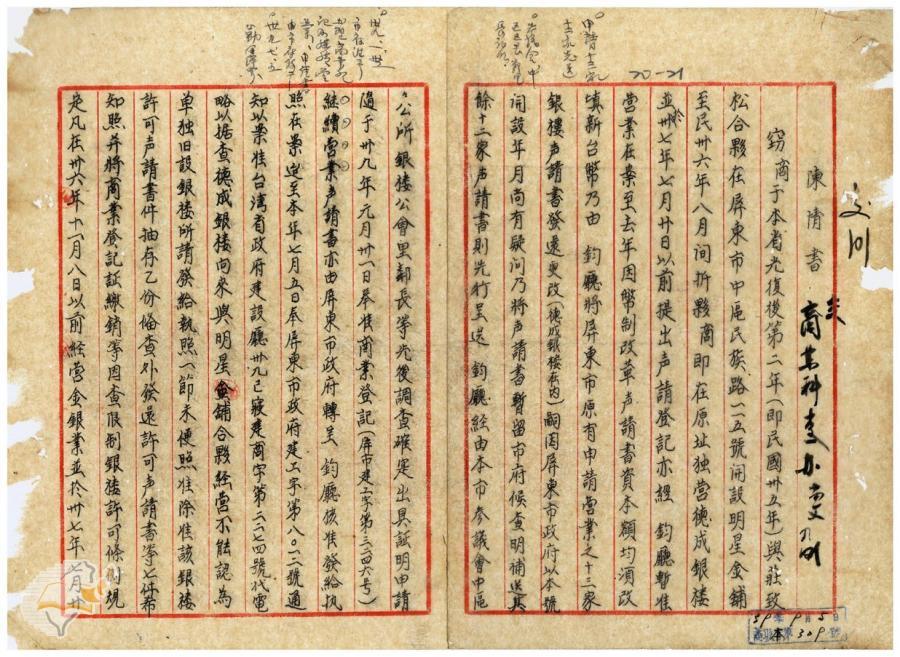 陳情書
竊商于本省光復後第二年(即民國卅五年)與莊致
松合夥在屏東市中區民族路一一五號開設明星金鋪
至民卅六年八月間折夥商即在原址独营德成銀楼
並於卅七年七月廿日以前提出声請登記亦經 鈞廳暫准
营業在案至去年因幣制改革声請書資本額均須改
填新台幣乃由 鈞廳將屏東市原有申請营業之十三家
銀樓声請書發還更改(德成銀楼在内)嗣因屏東市政府以本號
開設年月尚有疑问乃將声請書暫留市府候查明補送其
餘十二家声請書則先行呈送 鈞廳經由本市参議會中區
公所銀楼公會里鄰長等先後調查確定出具証明申請
隨于卅九年元月卅一日奉准商業登記(屏市建工字第三三四六号)
継續营業声請書亦由屏東市政府轉呈 鈞廳核准發給执
照在案迨至本年七月五日奉屏東市政府建工字第八〇二二號通
知以案准台湾省政府建設廳卅九已寢建商字第二二七四號代電
略以据查德成銀楼向來與明星金鋪合夥經营不能認為
单独旧設銀楼所請發給執照一節未便照准除准該銀楼
許可声請書件抽存乙份备查外發還許可声請書等七件希
知照并將商業登記証繳銷等因查限制銀楼許可條例規
定凡在卅六年十一月八日以前經营金銀業並於卅七年七月廿
20-21
商業科
39年9月5日
309